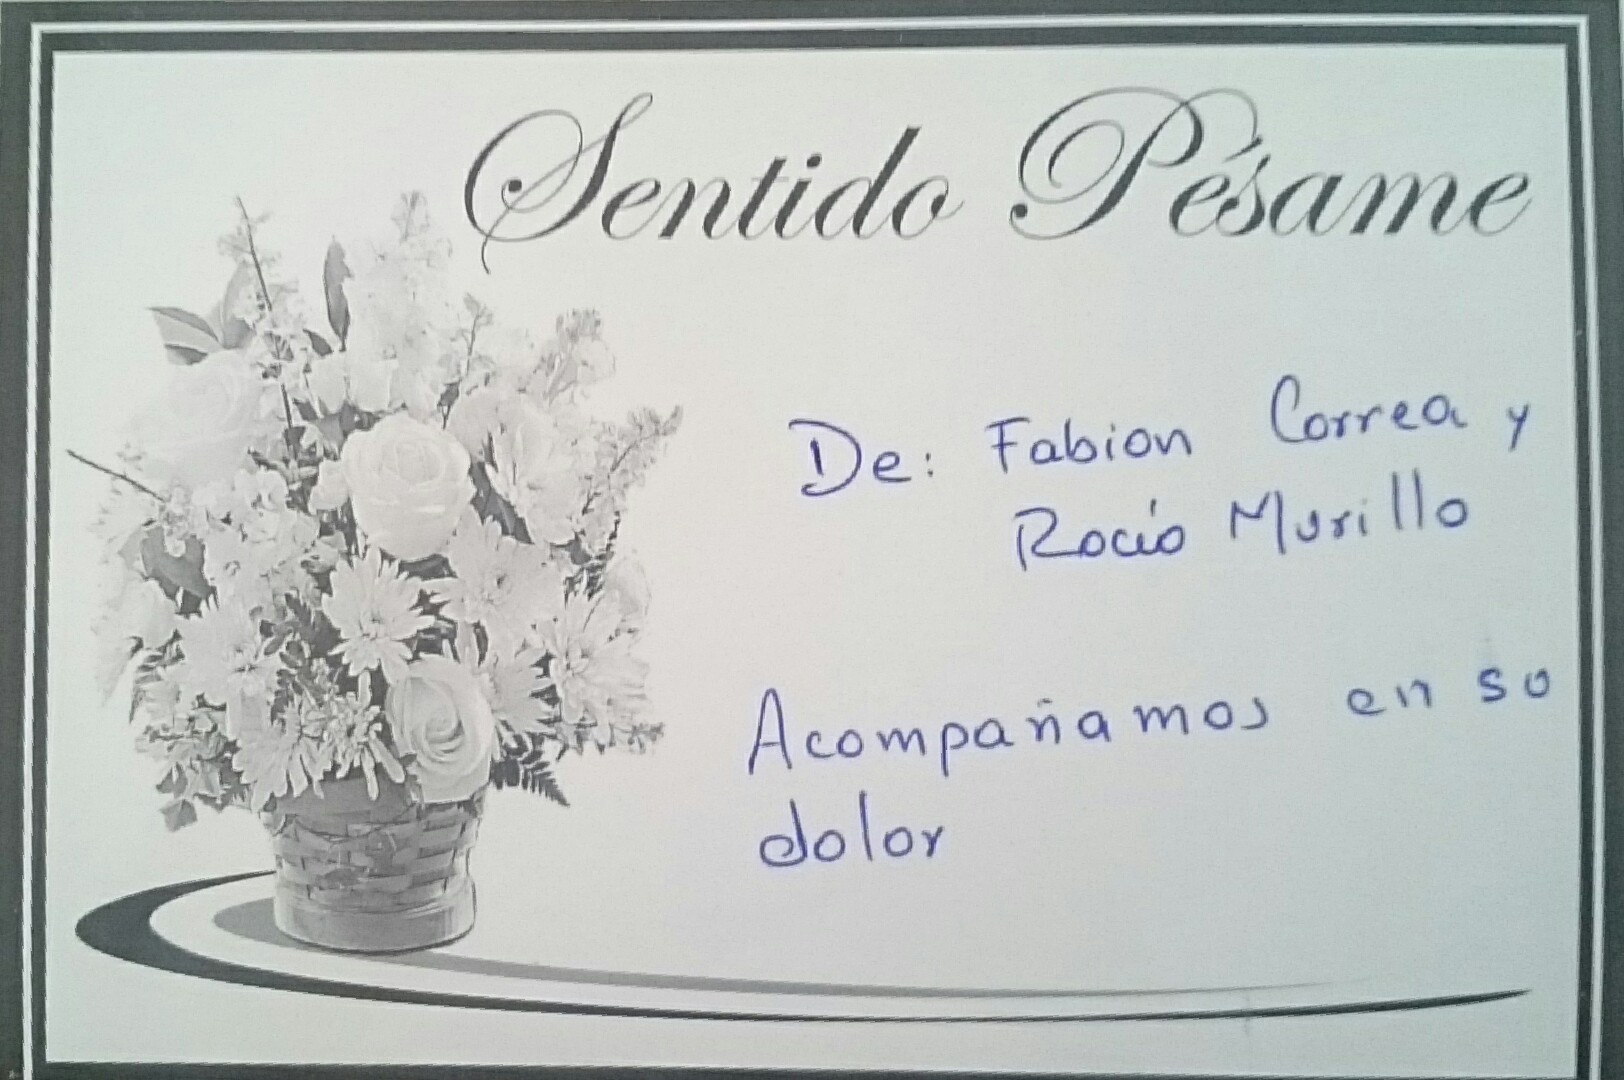 Sentido Pésame
De: Fabion Correa y
Rocío Murillo
Acompañamos en su
dolor